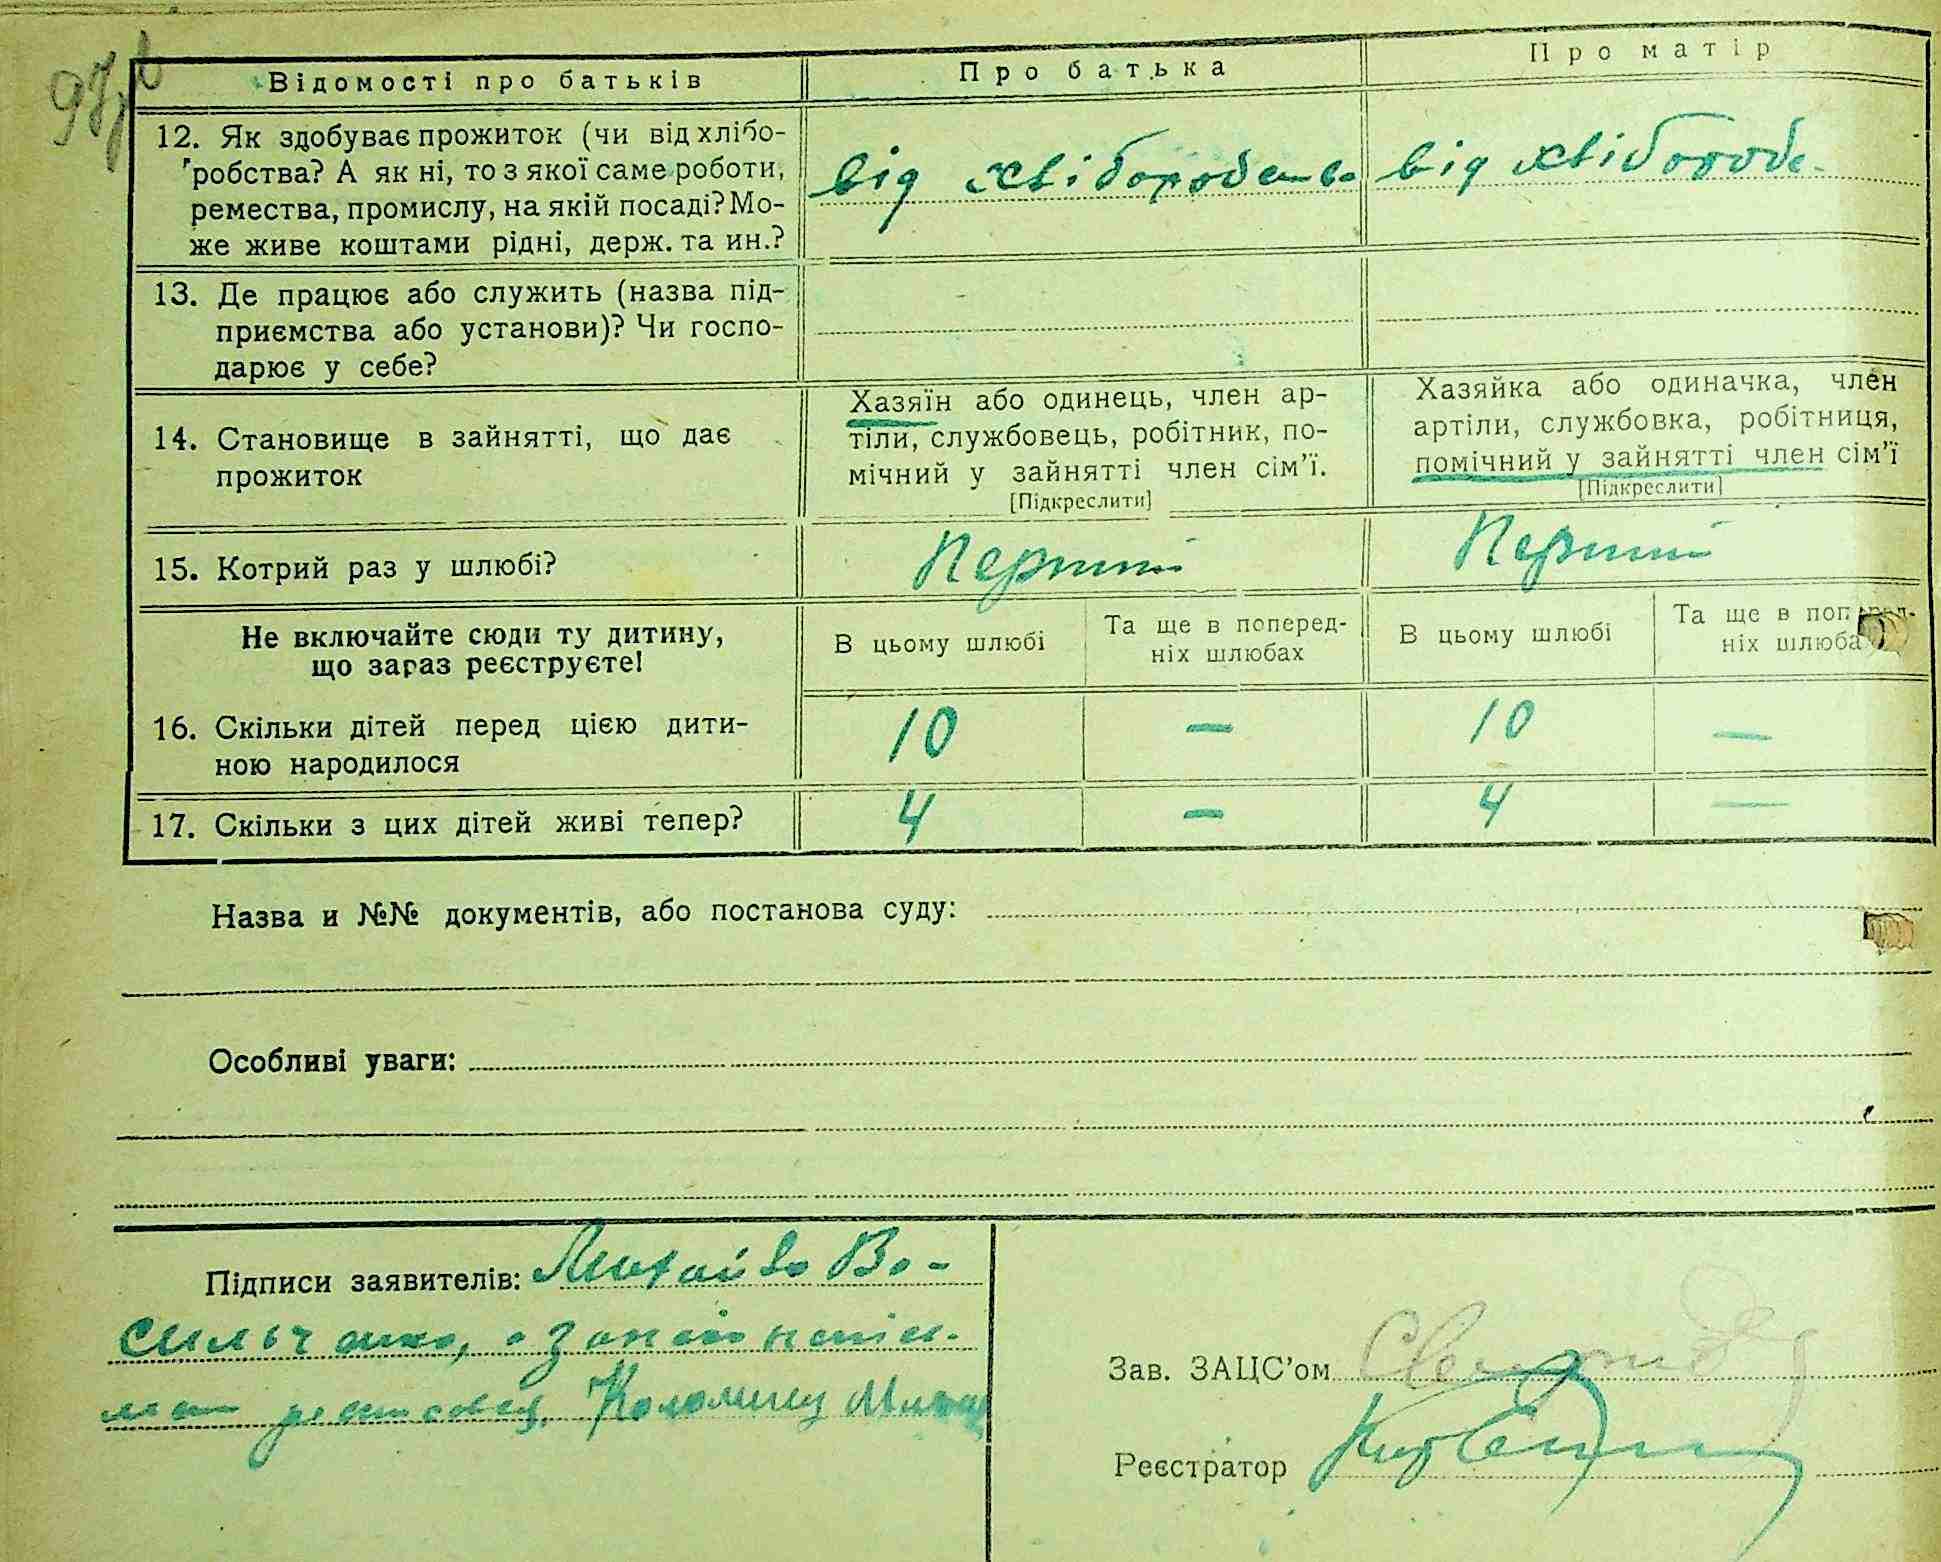 Відомості про батьків
Про батька
Про матір
12. Як здобуває прожиток (чи від хлібо-
робства? А як ні, то з якої саме роботи,
ремества, промислу, на якій посаді? Мо-
же живе коштами рідні, держ. та ин.?
від хліборобства
від хлібороб
13. Де працює або служить (назва під-
приємства або установи)? Чи госпо-
дарює у себе?
14. Становище в зайнятті, що дає
прожиток
Хазяїн або одинець, член ар-
тіли, службовець, робітник, по-
мічний у зайнятті член сім'ї.
[Підкреслити]
Хазяйка або одиначка, член
артіли, службовка, робітниця,
помічний у зайнятті член сім'ї
[Підкреслити]
15. Котрий раз у шлюбі?
Перший
Перший
Не включайте сюди ту дитину,
що зараз реєструєте!
В цьому шлюбі
Та ще в поперед-
ніх шлюбах
В цьому шлюбі
Та ще в поперед-
ніх шлюба
16. Скільки дітей перед цією дити-
ною народилося
10
—
10
—
17. Скільки з цих дітей живі тепер?
4
—
4
—
Назва и №№ документів, або постанова суду:
Особливі уваги:
Підписи заявителів: Михайло Ва-
сильченко, а за
Коломиец
Зав. ЗАЦС'ом
Реєстратор